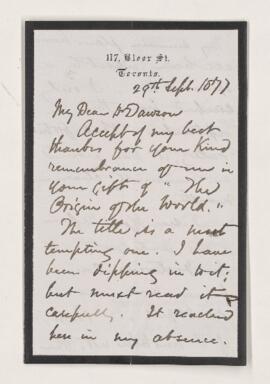 117, Bloor St.
Toronto.
29th Sept. 1877
My Dear Dr Dawson
Accept of my best
thanks for your kind
remembrance of me in
your gift of "The
Origin of the World."
The title is a most
tempting one. I have
been dipping in to it;
but must read it
carefully. It reached
here in my absence.